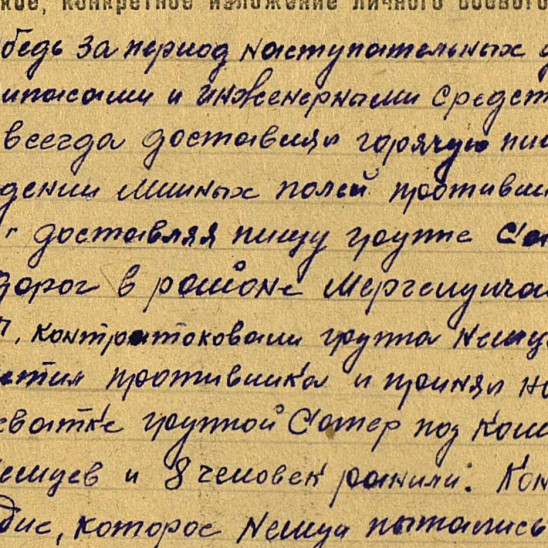 кое, конкретное изложение личного боевого
бедь за период наступательных
ипасами и инженерными средст
всегда доставлял горячую пи
дении минных полей противни
доставляя пищу группе Са
дорог в районе
контратаковали группа немц
етил противника и принял
схватке группой Сапер под ком
немцев и 8 человек ранили. Ко
дие, которое немцы пытались